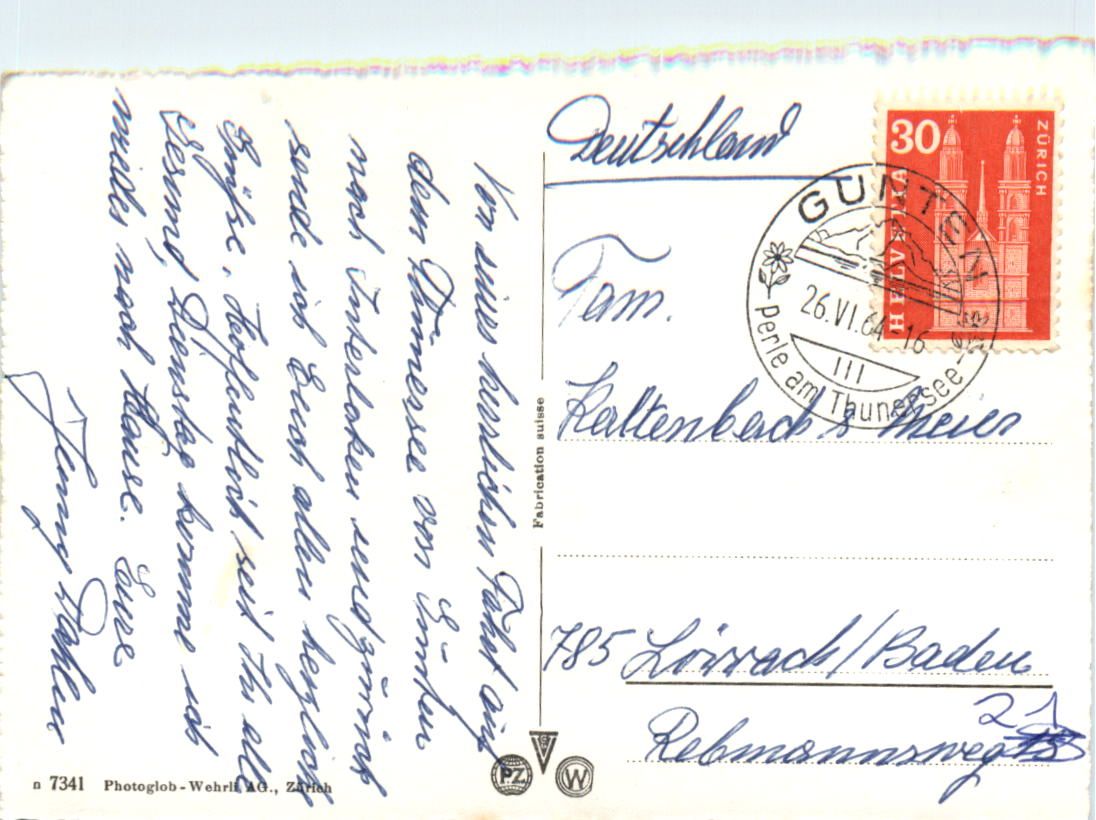 Von einer herrlichen Fahrt auf
dem Thunersee von Günten
nach Interlaken und zurück
sende ich Euch allen herzliche
Grüße. Hoffentlich seit Ihr alle
Gesund, Dienstag komme ich
wieder nach Hause. Eure
Jenny
Deutschland
Fam.
Kaltenbach & Meier
785 Lörrach/Baden
Rebmannsweg 21
30
HELVETIA
ZÜRICH
GUNTEN
26.VI.64-16
Perle am Thunersee
Fabrication suisse
n 7341 Photoglob-Wehrli AG., Zürich
PZ
W